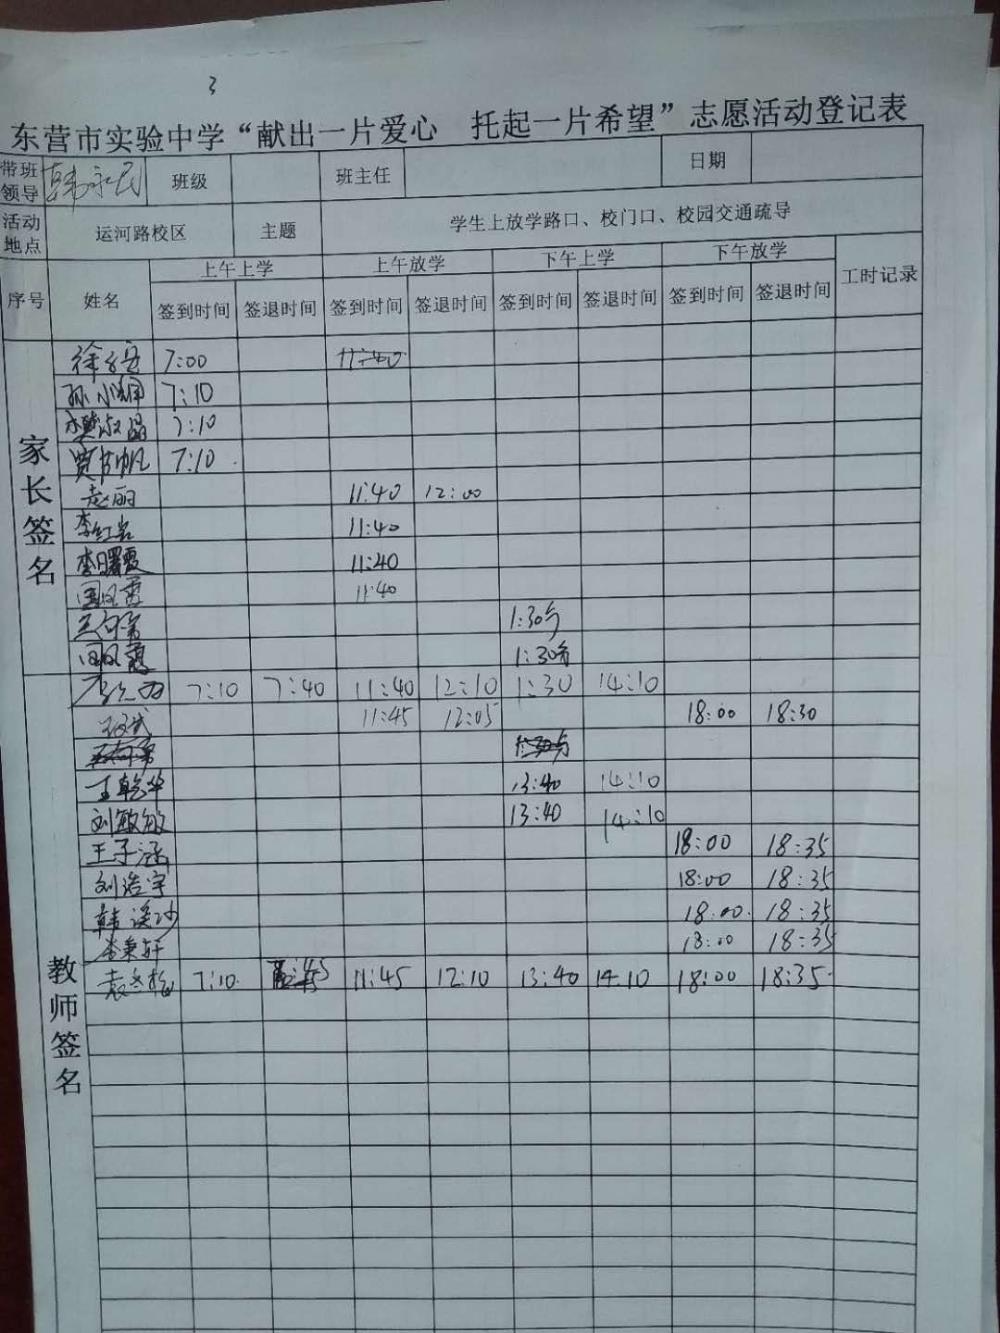 3
东营市实验中学“献出一片爱心 托起一片希望”志愿活动登记表
带班领导 韩永民 班级 班主任 日期
活动地点 运河路校区 主题 学生上放学路口、校门口、校园交通疏导
序号 姓名 上午上学 上午放学 下午上学 下午放学 工时记录
签到时间 签退时间 签到时间 签退时间 签到时间 签退时间 签到时间 签退时间
家长签名
7:00 11:40
孙小娟 7:10
樊淑晶 7:10
7:10
赵丽 11:40 12:00
李红岩 11:40
李曙霞 11:40
国凤霞 11:40
1:30
国凤霞 1:30
教师签名
7:10 7:40 11:40 12:10 1:30 14:10
11:45 12:05 18:00 18:30
王乾华 13:40 14:10
刘敏敏 13:40 14:10
王子涵 18:00 18:35
刘浩宇 18:00 18:35
韩 18:00 18:35
李秉轩 18:00 18:35
袁 7:10 11:45 12:10 13:40 14:10 18:00 18:35